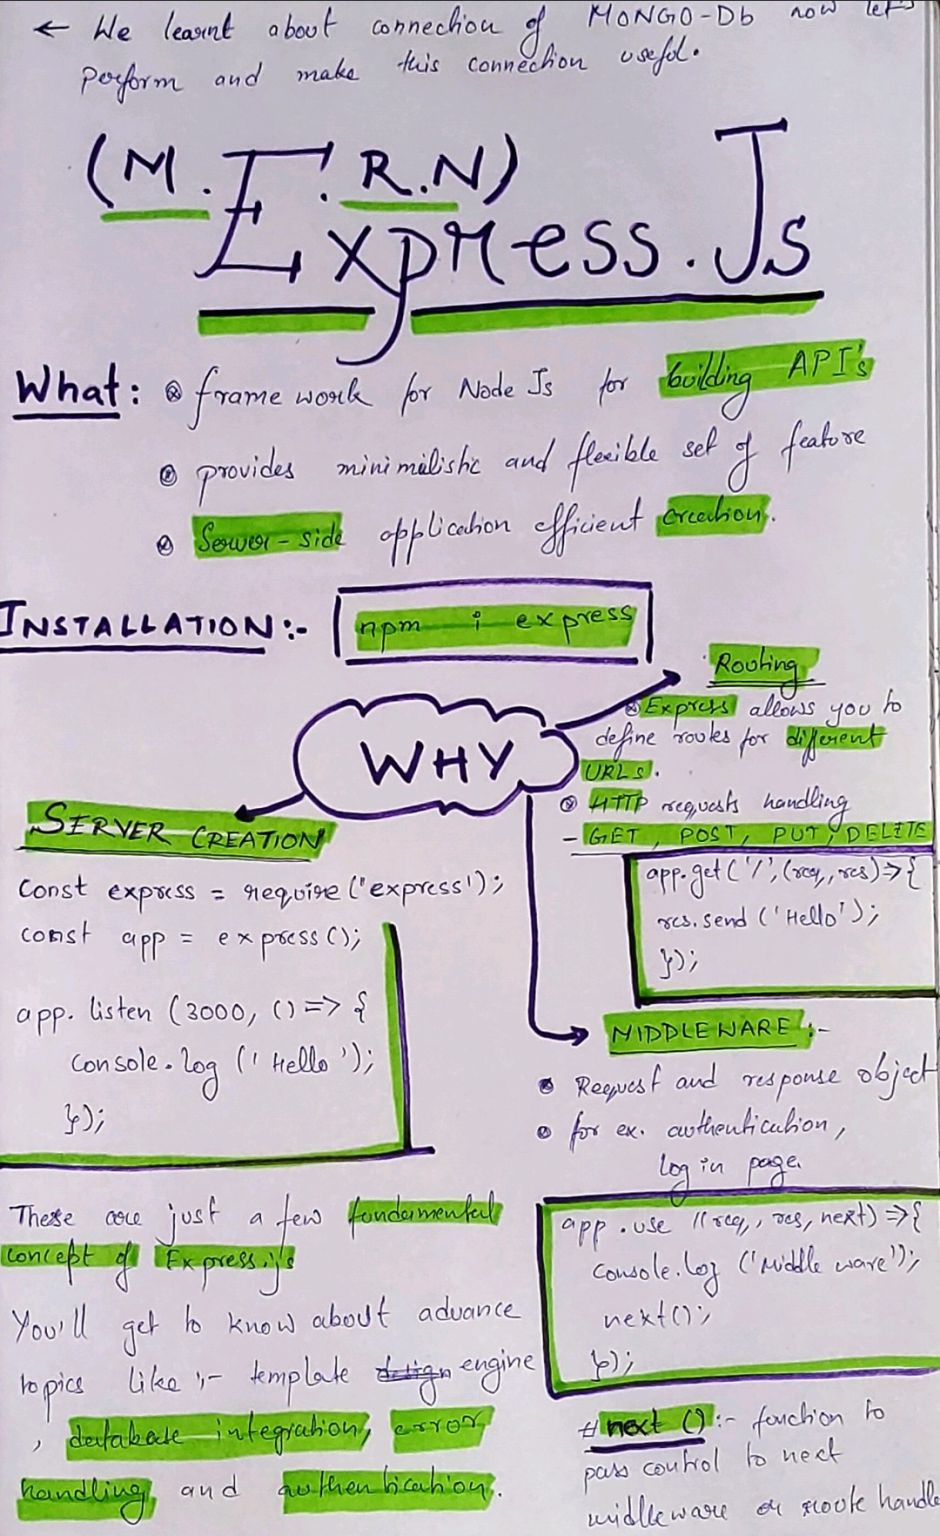 ← We learnt about connection of MONGO-Db now let's
perform and make this connection useful.
(M.E.R.N)
Express.Js
What: ⊗ frame work for Node Js for building API's
⊗ provides minimilistic and flexible set of feature
⊗ Server-side application efficient creation.
INSTALLATION:- npm i express
WHY
Routing
⊗ Express allows you to
define routes for different
URLs.
⊗ HTTP requests handling
- GET, POST, PUT, DELETE
app.get('/',(req,res)=>{
res.send('Hello');
});
SERVER CREATION
Const express = require('express');
const app = express();
app.listen (3000, () => {
Console.log ('Hello');
});
MIDDLEWARE:-
• Request and response object
• for ex. authentication,
log in page.
app.use ((req, res, next) =>{
console.log ('Middle ware');
next();
});
#next ():- function to
pass control to next
middleware or route handle
These are just a few fundamental
concept of Express.js
You'll get to know about advance
topics like :- template design engine
, database integration, error
handling and authentication.